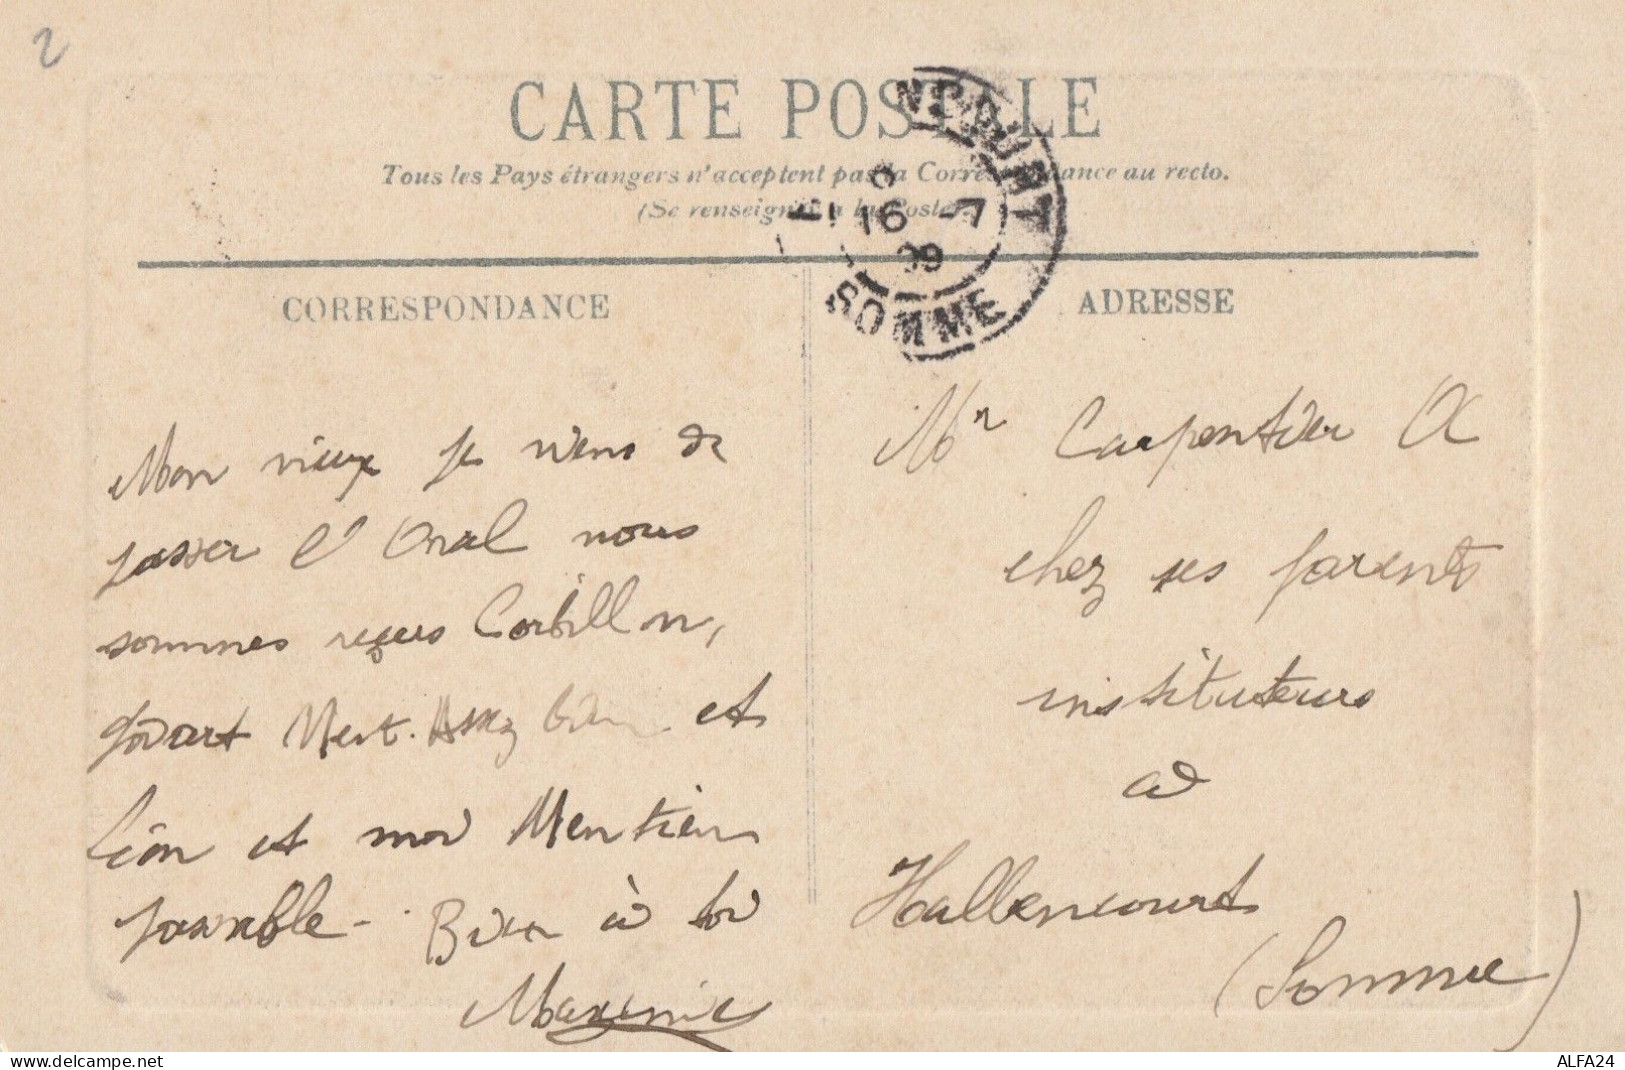 2
CARTE POSTALE
Tous les Pays étrangers n'acceptent pas la Correspondance au recto.
(Se renseigner à la Poste)
NCOURT
16 -7
09
SOMME
CORRESPONDANCE
ADRESSE
Mon vieux je viens de
passer l'Oral nous
sommes reçus Corbillon,
Godart Ment. Assez bien et
Léon et moi Mention
passable - Bien à toi
Mr Carpentier A
chez ses parents
instituteurs
à
Hallencourt
(Somme)
www.delcampe.net
ALFA24